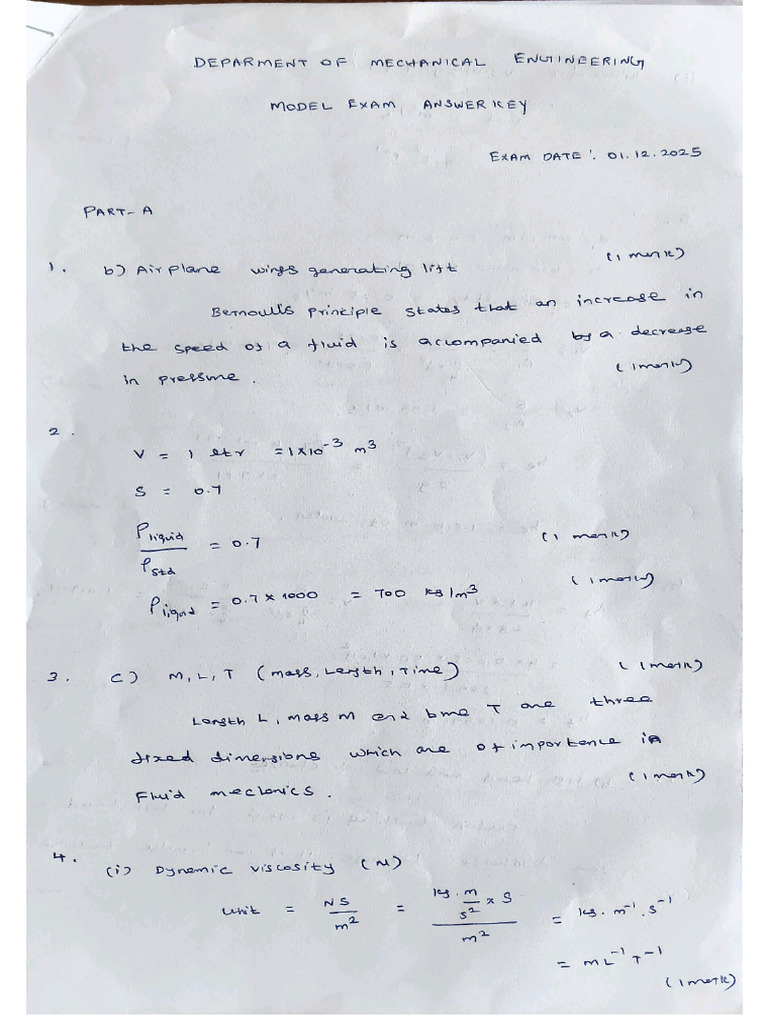 DEPARMENT OF MECHANICAL ENGINEERING
MODEL EXAM ANSWER KEY
EXAM DATE : 01.12.2025
PART-A
1. b) Airplane wings generating lift (1 mark)
Bernoulli's Principle states that an increase in
the speed of a fluid is accompanied by a decrease
in pressure. (1 mark)
2.
V = 1 ltr = 1×10⁻³ m³
S = 0.7
ρ liquid / ρ std = 0.7 (1 mark)
ρ liquid = 0.7 × 1000 = 700 kg/m³ (1 mark)
3. C) M, L, T (mass, Length, Time) (1 mark)
Length L, mass M and time T are three
fixed dimensions which are of importance in
Fluid mechanics. (1 mark)
4.
(i) Dynamic viscosity (μ)
Unit = NS / m² = kg. m / s² × S / m² = kg. m⁻¹. s⁻¹
= ML⁻¹T⁻¹
(1 mark)